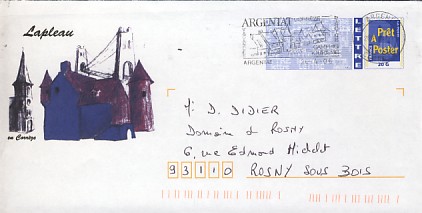 Lapleau
ARGENTAT
LETTRE
Prêt
à
Poster
20 G
ARGENTAT
en Corrèze
M. D. DIDIER
Domaine de ROSNY
6, rue Edmond Michelet
93110 ROSNY SOUS BOIS